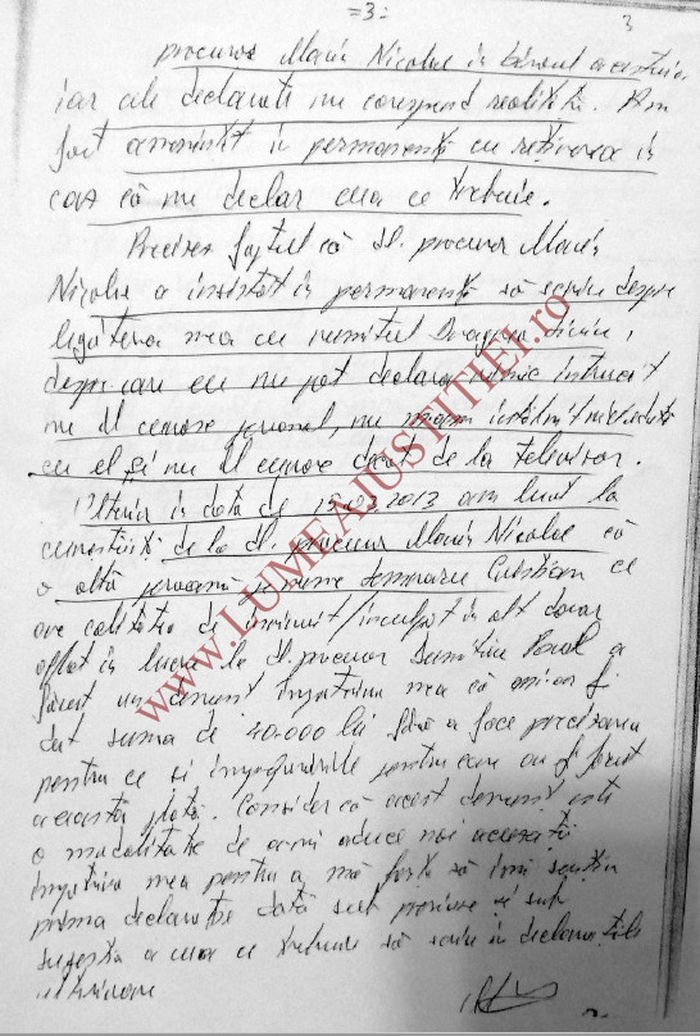 =3=
3
procuror Marin Nicolae in biroul acestuia
iar cele declarate nu corespund realitatii. Am
fost amenintat in permanență cu reținerea in
caz că nu declar ceea ce trebuie.
Precizez faptul că dl. procuror Marin
Nicolae a insistat in permanență să scriu despre
legătura mea cu numitul Dragnea Liviu,
despre care eu nu pot declara nimic intrucat
nu il cunosc personal, nu
cu el și nu il cunosc decat de la televizor.
Ulterior in data de 15.03.2013 am luat la
cunoștință de la dl. procuror Marin Nicolae că
o altă persoană pe nume Cristian ce
are calitatea de invinuit/inculpat in alt dosar
aflat in lucru la dl. procuror Dumitru Pavel a
făcut un denunt impotriva mea că mi-ar fi
dat suma de 40.000 lei fără a face precizarea
pentru ce si imprejurările pentru care au fi facut
această plată. Consider că acest denunt este
o modalitate de a-mi aduce noi acuzatii
impotriva mea pentru a mă forța să imi sustin
prima declaratie dată sub presiune și sub
sugestia a ceea ce trebuie să scriu in declaratiile
ulterioare
www.LUMEAJUSTITIEI.ro